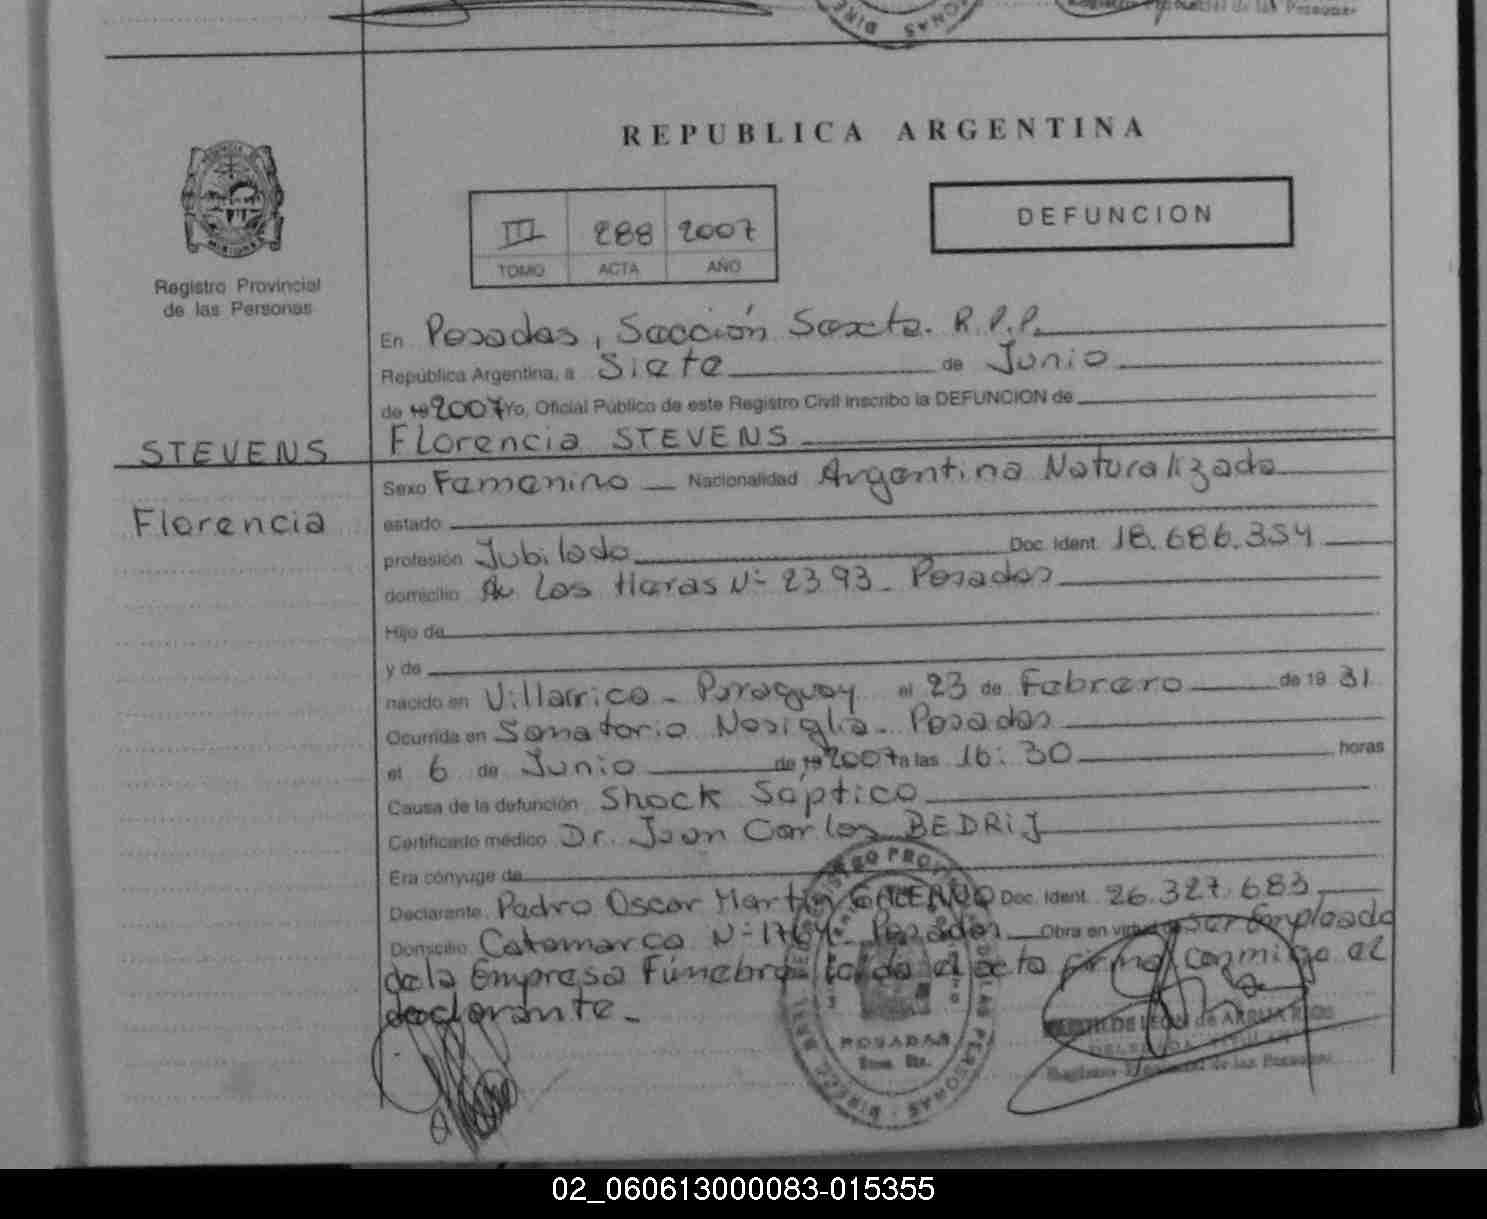 REPUBLICA ARGENTINA
III 288 2007
TOMO ACTA AÑO
DEFUNCION
Registro Provincial
de las Personas
En Posadas, Sección Sexta. R.P.P.
República Argentina, a Siete de Junio
de 19 2007 Yo, Oficial Público de este Registro Civil inscribo la DEFUNCION de
STEVENS
Florencia
Florencia STEVENS
Sexo Femenino Nacionalidad Argentina Naturalizada
estado
profesión Jubilada Doc. Ident. 18.686.354
domicilio Av Las Heras Nº 2393 - Posadas
Hijo de
y de
nacido en Villarrica - Paraguay el 23 de Febrero de 19 31
Ocurrida en Sanatorio Nosiglia - Posadas
el 6 de Junio de 19 2007 a las 16:30 horas
Causa de la defunción Shock Séptico
Certificado médico Dr. Juan Carlos BEDRIJ
Era cónyuge de
Declarante Pedro Oscar Martín GALEANO Doc. Ident. 26.327.683
Domicilio Catamarca Nº 1764 - Posadas Obra en virtud de ser Empleado
de la Empresa Fúnebre, leída el acta firma conmigo el
declarante.-
POSADAS
DE LEON de
Registro Provincial de las Personas
02_060613000083-015355